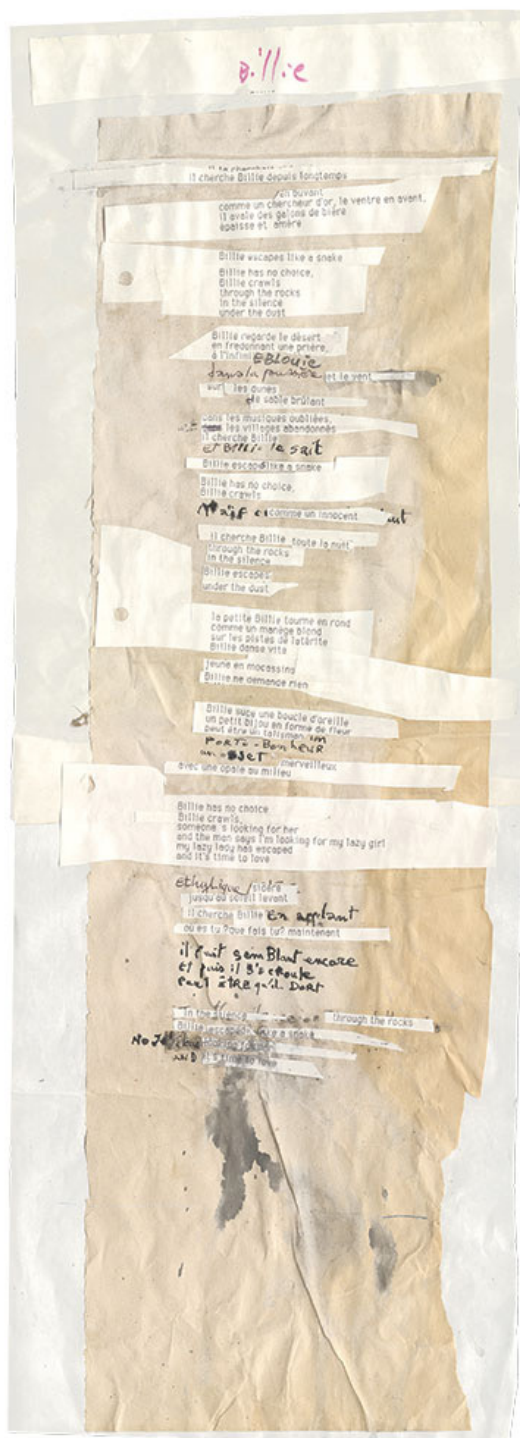 Billie
il cherche Billie depuis longtemps
en buvant
comme un chercheur d'or, le ventre en avant,
il avale des galons de bière
épaisse et amère
Billie escapes like a snake
Billie has no choice,
Billie crawls
through the rocks
in the silence
under the dust
Billie regarde le désert
en fredonnant une prière,
à l'infini EBLOUIE
dans la poussière et le vent
sur les dunes
de sable brûlant
dans les musiques oubliées,
et les villages abandonnés
il cherche Billie
et Billie le sait
Billie escapes like a snake
Billie has no choice,
Billie crawls
Naïf comme un innocent
il cherche Billie toute la nuit
through the rocks
in the silence
Billie escapes
under the dust
la petite Billie tourne en rond
comme un manège blond
sur les pistes de latérite
Billie danse vite
jeune en mocassins
Billie ne demande rien
Billie suce une boucle d'oreille
un petit bijou en forme de fleur
peut être un talisman un
PORTE-BonHEUR
un OBJET merveilleux
avec une opale au milieu
Billie has no choice
Billie crawls,
someone's looking for her
and the man says I'm looking for my lazy girl
my lazy lady has escaped
and it's time to love
Ethylique/sidéré
jusqu'au soleil levant
il cherche Billie En appelant
où es tu ?que fais tu? maintenant
il fait semBlant encore
Et puis il s'écroule
Peut ÊTRE qu'il DORT
in the silence through the rocks
Billie escapes like a snake
AND it's time to love